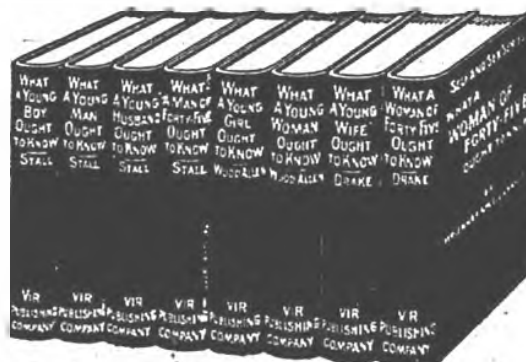 WHAT
A YOUNG
BOY
OUGHT
TO KNOW
STALL
VIR
PUBLISHING
COMPANY
WHAT
A YOUNG
MAN
OUGHT
TO KNOW
STALL
VIR
PUBLISHING
COMPANY
WHAT
A YOUNG
HUSBAND
OUGHT
TO KNOW
STALL
VIR
PUBLISHING
COMPANY
WHAT
A MAN OF
FORTY-FIVE
OUGHT
TO KNOW
STALL
VIR
PUBLISHING
COMPANY
WHAT
A YOUNG
GIRL
OUGHT
TO KNOW
WOOD-ALLEN
VIR
PUBLISHING
COMPANY
WHAT
A YOUNG
WOMAN
OUGHT
TO KNOW
WOOD-ALLEN
VIR
PUBLISHING
COMPANY
WHAT
A YOUNG
WIFE
OUGHT
TO KNOW
DRAKE
VIR
PUBLISHING
COMPANY
WHAT A
WOMAN OF
FORTY FIVE
OUGHT
TO KNOW
DRAKE
VIR
PUBLISHING
COMPANY
SELF AND SEX SERIES
WHAT A
WOMAN OF
FORTY-FIVE
OUGHT TO KNOW
BY